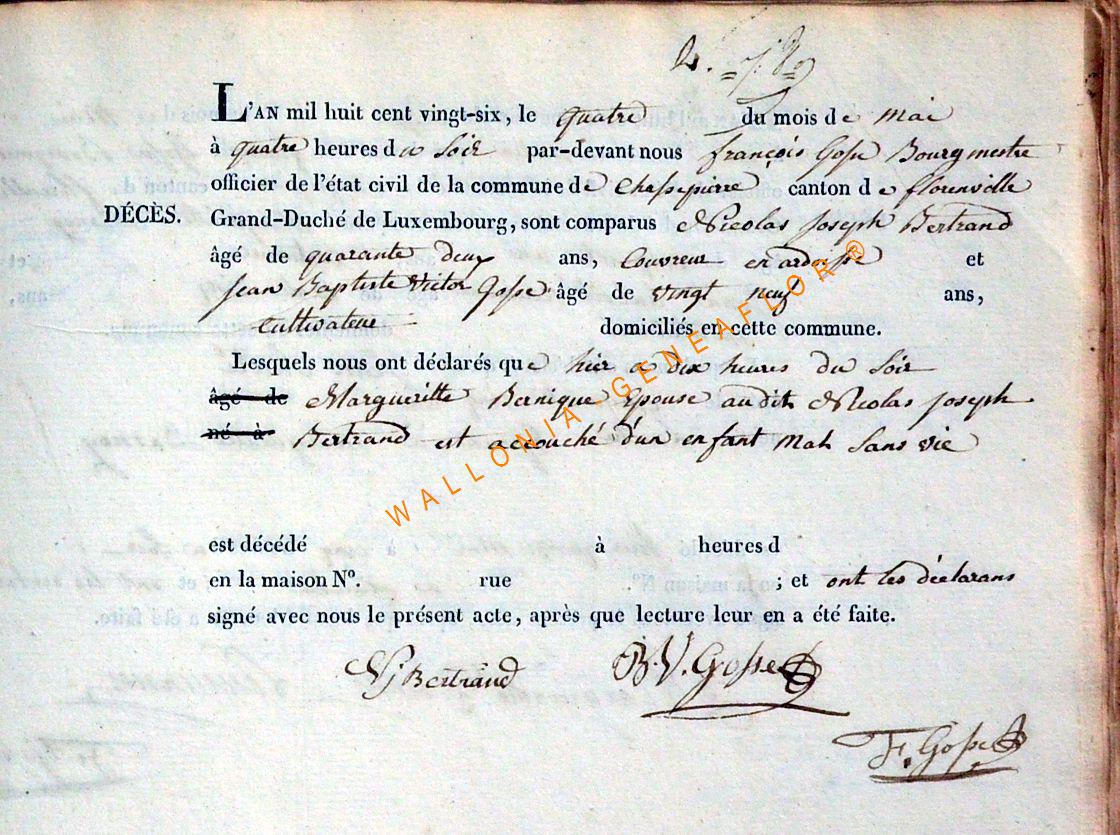 L'AN mil huit cent vingt-six, le quatre du mois de mai
à quatre heures du soir par-devant nous françois Gosse Bourgmestre
officier de l'état civil de la commune de Chassepierre canton de florenville
DÉCÈS. Grand-Duché de Luxembourg, sont comparus Nicolas Joseph Bertrand
âgé de quarante deux ans, Couvreur en ardoise et
Jean Baptiste Victor Gosse âgé de vingt neuf ans,
Cultivateur domiciliés en cette commune.
Lesquels nous ont déclarés que hier a dix heures du soir
âgé de Margueritte Epouse audit Nicolas Joseph
né à Bertrand est accouché d'un enfant Mal Sans vie
est décédé à heures d
en la maison N°. rue ; et ont les déclarans
signé avec nous le présent acte, après que lecture leur en a été faite.
NJ Bertrand B. V. Gosse
F. Gosse
WALLONIA-GENEAFLOR®